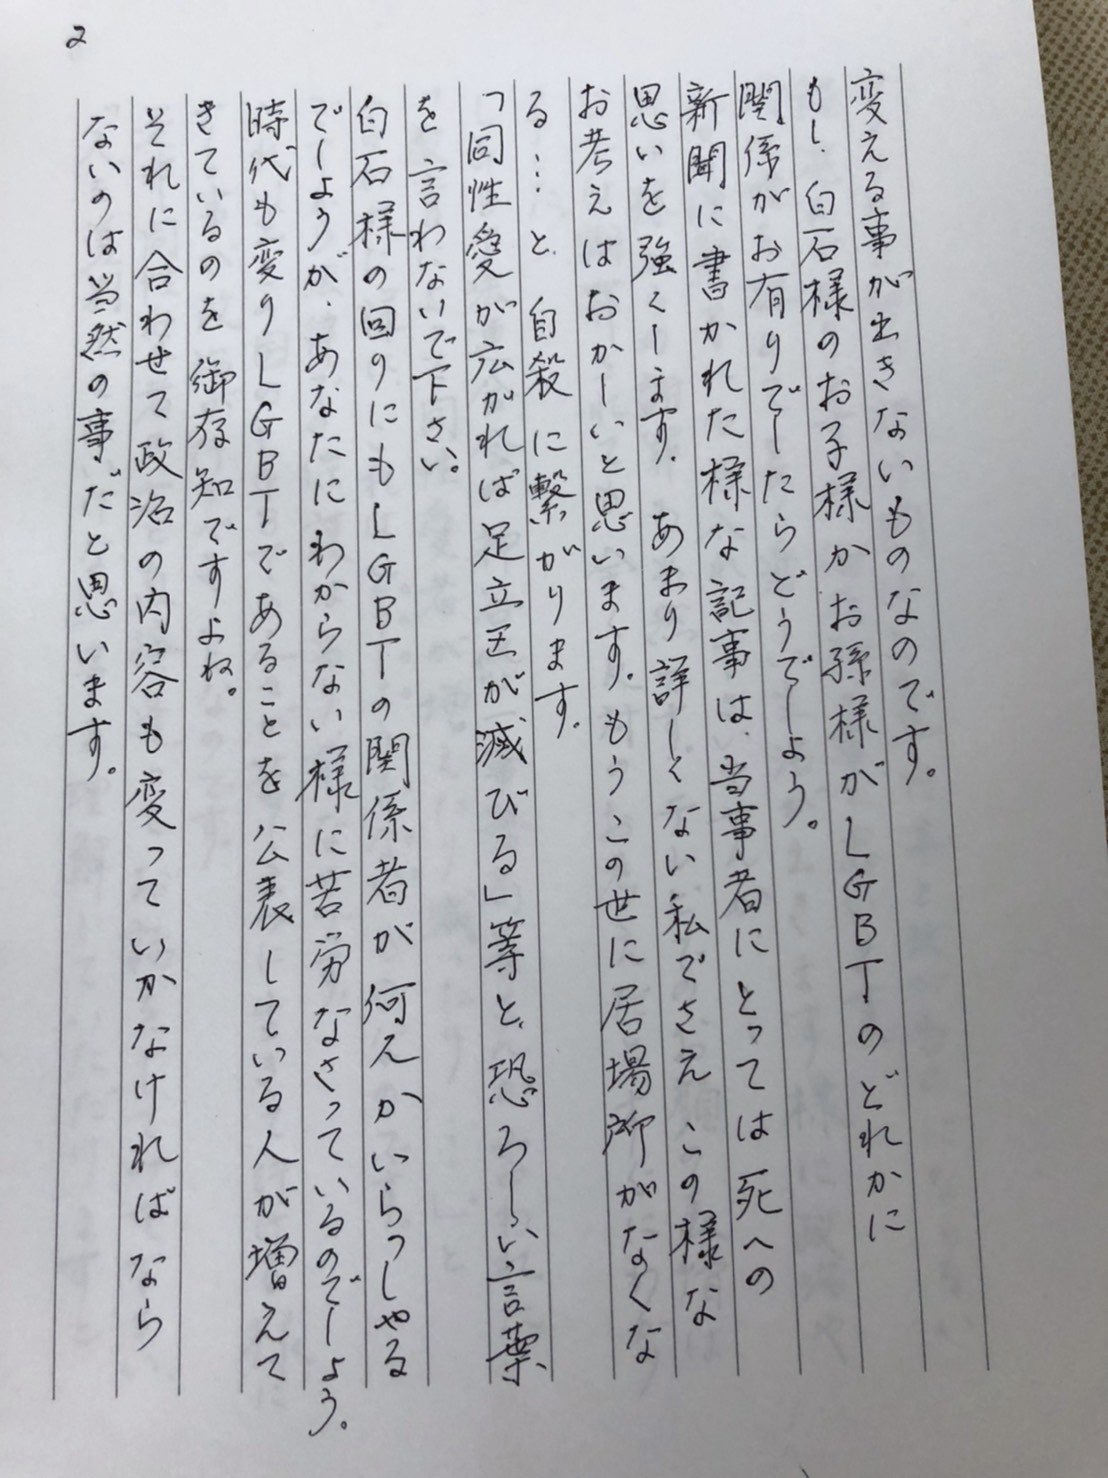 2
変える事が出きないものなのです。
もし、白石様のお子様かお孫様がLGBTのどれかに
関係がお有りでしたらどうでしょう。
新聞に書かれた様な記事は、当事者にとっては死への
思いを強くします。あまり詳しくない私でさえこの様な
お考えはおかしいと思います。もうこの世に居場所がなくな
る…と、自殺に繋がります。
「同性愛が広がれば足立区が滅びる」等と、恐ろしい言葉
を言わないで下さい。
白石様の回りにもLGBTの関係者が何人かいらっしゃる
でしょうが、あなたにわからない様に苦労なさっているのでしょう。
時代も変りLGBTであることを公表している人が増えて
きているのを御存知ですよね。
それに合わせて政治の内容も変っていかなければなら
ないのは当然の事だと思います。